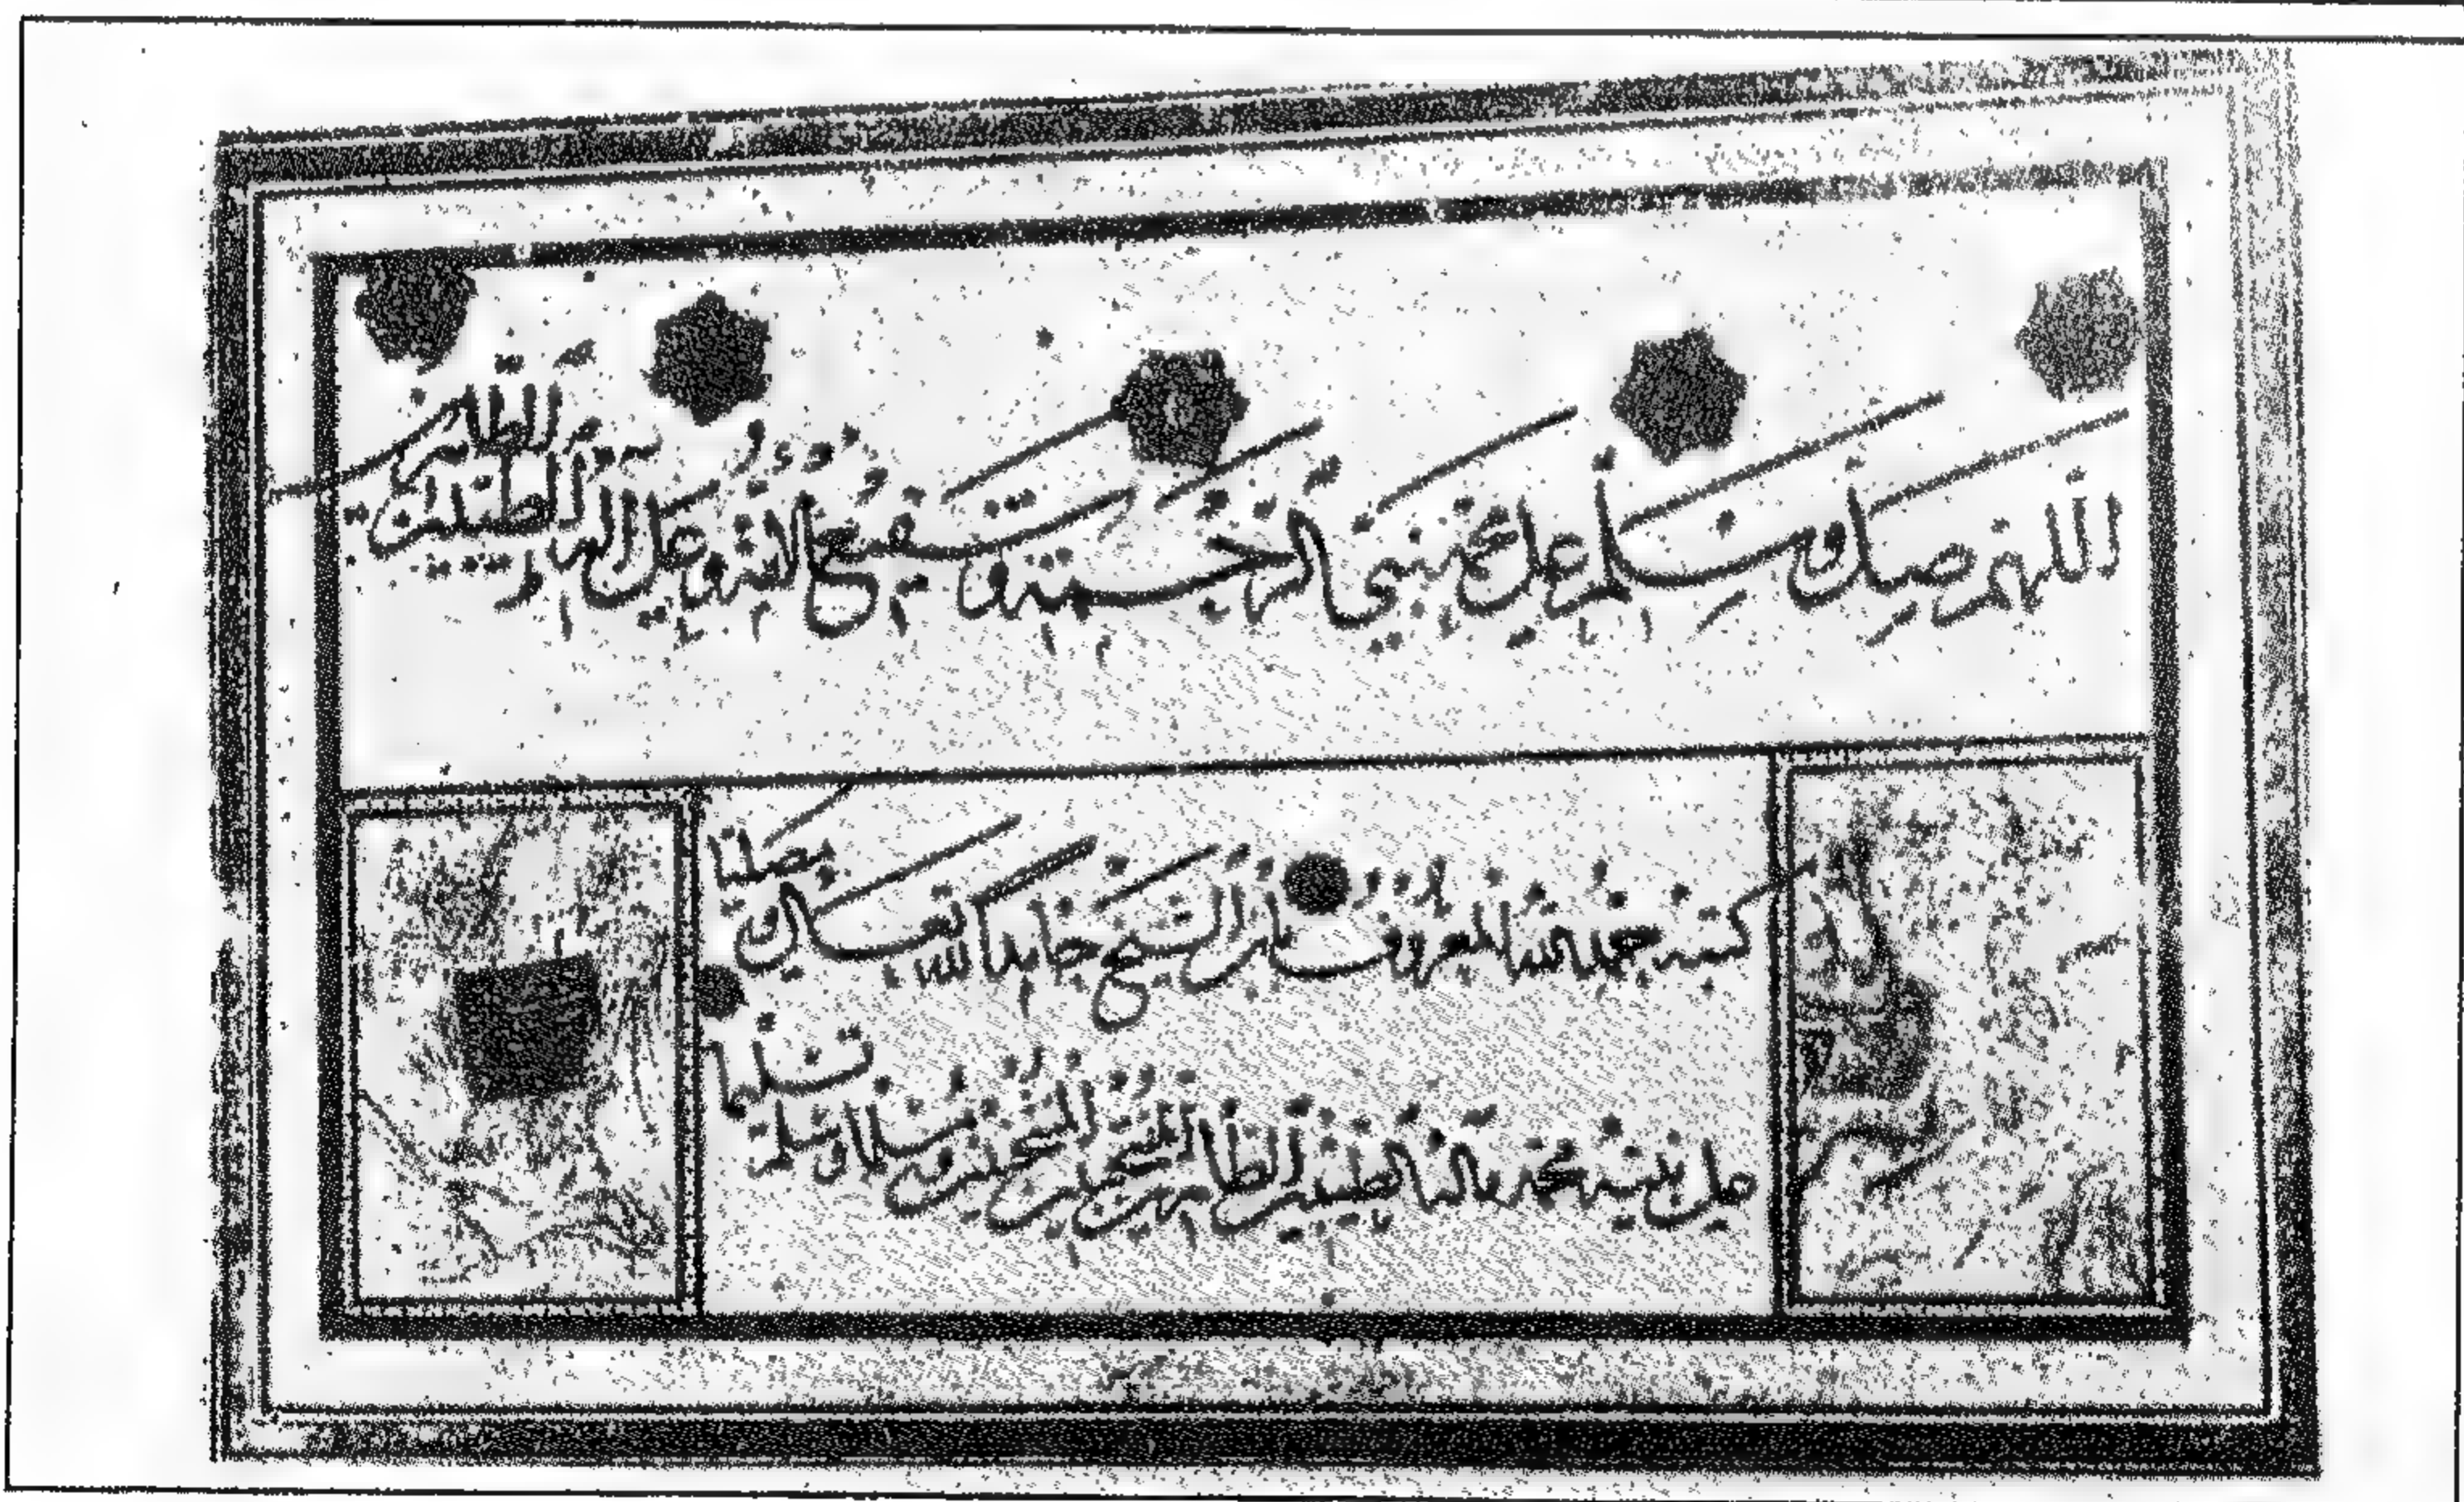 اللهم صل وسلم على محمد نبي الرحمة وشفيع الأمة وعلى آله الطيبين الطاهرين
كتبه حمد الله المعروف بابن الشيخ حامدا لله تعالى ومصليا
على نبيه محمد وآله الطيبين الطاهرين وصحبه ومسلما تسليما